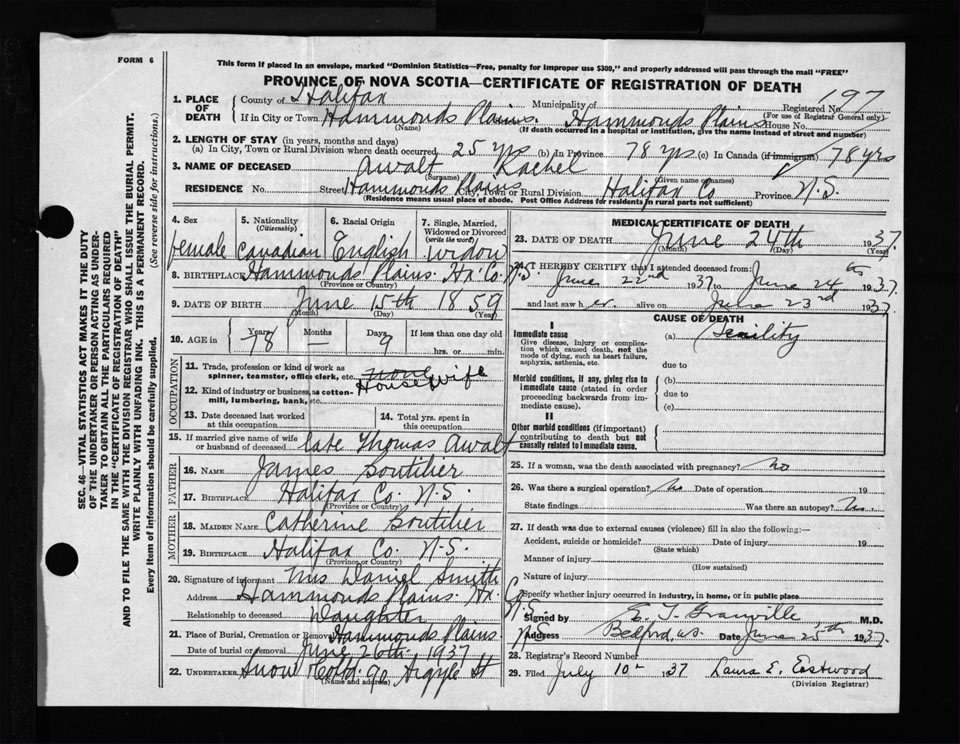 FORM 6
This form if placed in an envelope, marked "Dominion Statistics—Free, penalty for improper use $300," and properly addressed will pass through the mail "FREE"
PROVINCE OF NOVA SCOTIA—CERTIFICATE OF REGISTRATION OF DEATH
SEC. 46—VITAL STATISTICS ACT MAKES IT THE DUTY
OF THE UNDERTAKER OR PERSON ACTING AS UNDER-
TAKER TO OBTAIN ALL THE PARTICULARS REQUIRED
IN THE "CERTIFICATE OF REGISTRATION OF DEATH"
AND TO FILE THE SAME WITH THE DIVISION REGISTRAR WHO SHALL ISSUE THE BURIAL PERMIT.
WRITE PLAINLY WITH UNFADING INK. THIS IS A PERMANENT RECORD.
Every item of information should be carefully supplied. (See reverse side for instructions.)
1. PLACE OF DEATH County of Halifax Municipality of Registered No. 197
(For use of Registrar General only)
If in City or Town Hammonds Plains. Hammonds Plains House No.
(Name) (If death occurred in a hospital or institution, give the name instead of street and number)
2. LENGTH OF STAY (in years, months and days)
(a) In City, Town or Rural Division where death occurred 25 yrs (b) In Province 78 yrs (c) In Canada (if immigrant) 78 yrs
3. NAME OF DECEASED Awalt Rachel
(Surname) (Given names)
RESIDENCE No. Street Hammonds Plains City, Town or Rural Division Halifax Co Province N.S.
(Residence means usual place of abode. Post Office Address for residents in rural parts not sufficient)
4. Sex 5. Nationality (Citizenship) 6. Racial Origin 7. Single, Married, Widowed or Divorced (write the word)
female Canadian English widow
8. BIRTHPLACE Hammonds Plains. Hx. Co. N.S.
(Province or Country)
9. DATE OF BIRTH June 15th 1859
(Month) (Day) (Year)
10. AGE in Years Months Days If less than one day old
78 — 9 hrs. or min.
OCCUPATION
11. Trade, profession or kind of work as spinner, teamster, office clerk, etc. none
Housewife
12. Kind of industry or business, as cotton-mill, lumbering, bank, etc.
13. Date deceased last worked at this occupation
14. Total yrs. spent in this occupation
15. If married give name of wife or husband of deceased late Thomas Awalt
FATHER
16. NAME James Boutilier
17. BIRTHPLACE Halifax Co. N.S.
(Province or Country)
MOTHER
18. MAIDEN NAME Catherine Boutilier
19. BIRTHPLACE Halifax Co. N.S.
(Province or Country)
20. Signature of informant Mrs Daniel Smith
Address Hammonds Plains. Hx. Co. N.S.
Relationship to deceased Daughter
21. Place of Burial, Cremation or Removal Hammonds Plains N.S.
Date of burial or removal June 26th 1937
22. UNDERTAKER Snow & Co Ltd. 90 Argyle St
(Name and address)
MEDICAL CERTIFICATE OF DEATH
23. DATE OF DEATH June 24th 1937.
(Month) (Day) (Year)
24. I HEREBY CERTIFY that I attended deceased from:
June 22nd 1937 to June 24th 1937.
and last saw her alive on June 23rd 1937.
CAUSE OF DEATH
I
Immediate cause (a) Senility
Give disease, injury or complication which caused death, not the mode of dying, such as heart failure, asphyxia, asthenia, etc.
due to
Morbid conditions, if any, giving rise to immediate cause (stated in order proceeding backwards from immediate cause).
(b)
due to
(c)
II
Other morbid conditions (if important) contributing to death but not causally related to immediate cause.
25. If a woman, was the death associated with pregnancy? No
26. Was there a surgical operation? No Date of operation 19
State findings Was there an autopsy? No.
27. If death was due to external causes (violence) fill in also the following:—
Accident, suicide or homicide? Date of injury 19
(State which)
Manner of injury
(How sustained)
Nature of injury
Specify whether injury occurred in industry, in home, or in public place
Signed by E. T. Granville M.D.
Address Bedford, N.S. Date June 25th 1937.
28. Registrar's Record Number
29. Filed July 10th 1937 Laura E. Eastwood
(Division Registrar)